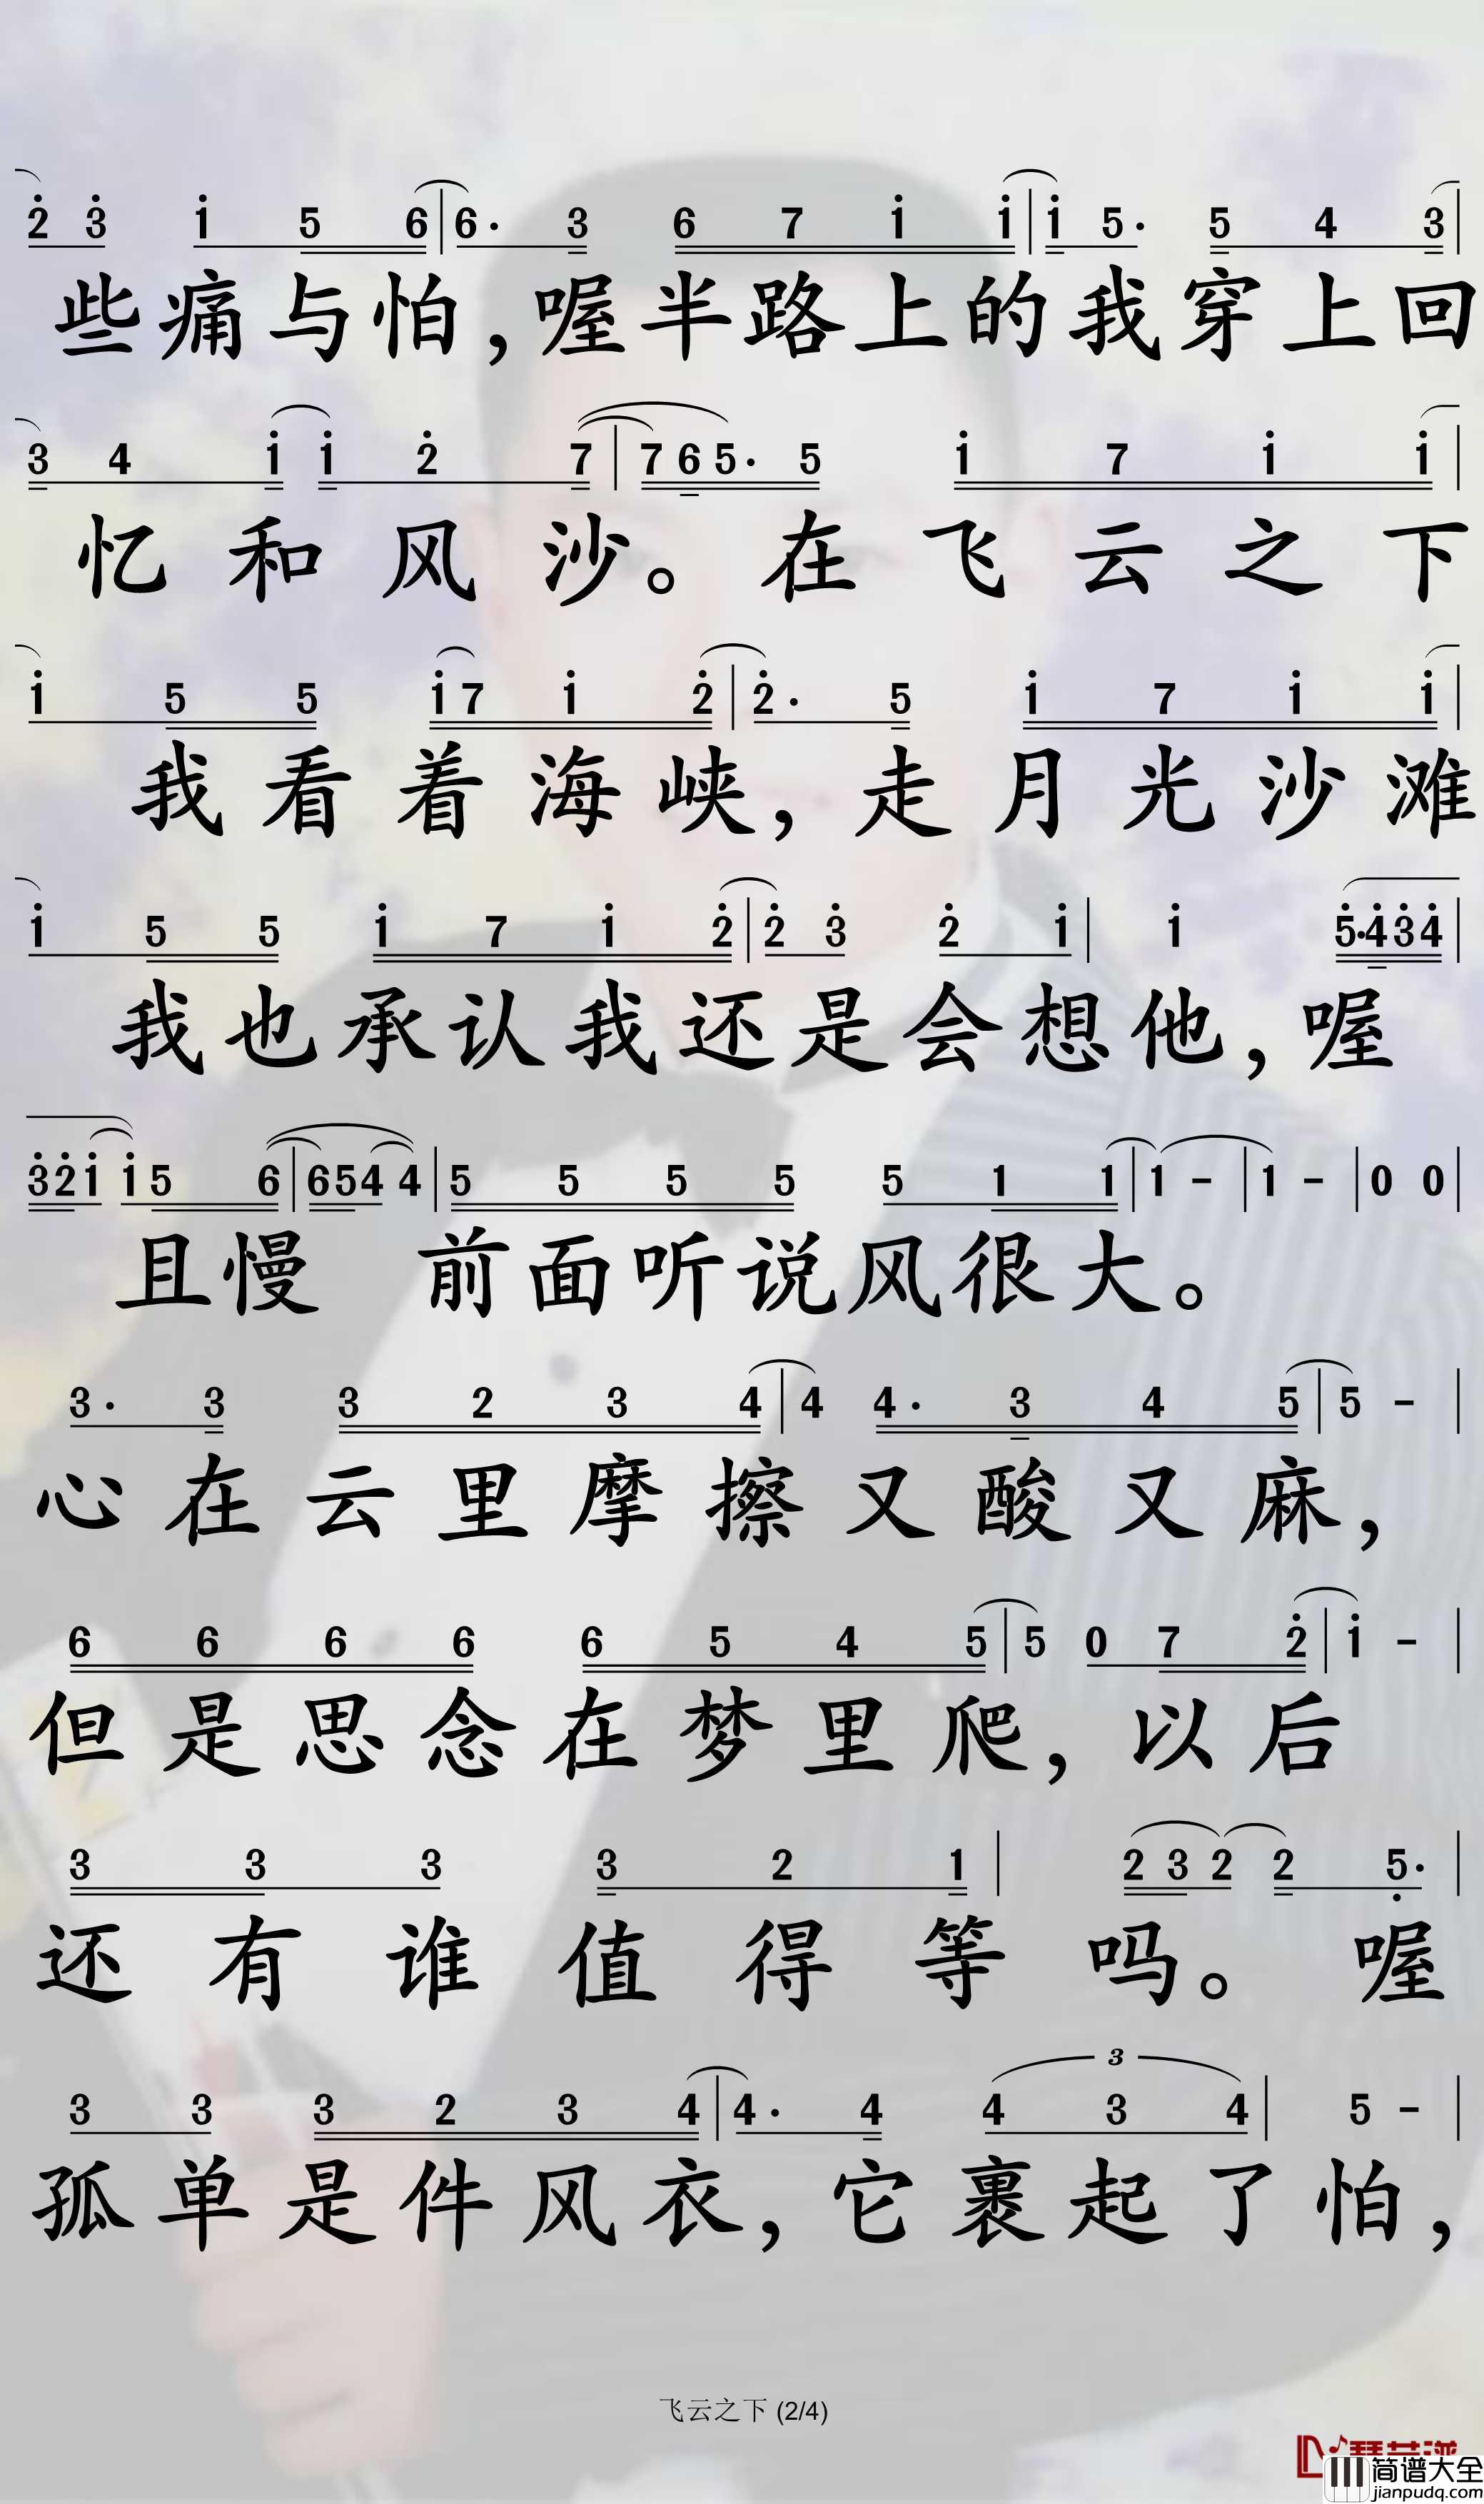 2 3 1 5 6 | 6· 3 6 7 1 1 | 1 5· 5 4 3 |
些痛与怕，喔半路上的我穿上回
3 4 1 1 2 7 | 7 6 5· 5 1 7 1 1 |
忆和风沙。在飞云之下
1 5 5 1 7 1 2 | 2· 5 1 7 1 1 |
我看着海峡，走月光沙滩
1 5 5 1 7 1 2 | 2 3 2 1 | 1 5·4 3 4 |
我也承认我还是会想他，喔
3 2 1 1 5 6 | 6 5 4 4 | 5 5 5 5 5 1 1 | 1 - | 1 - | 0 0 |
且慢 前面听说风很大。
3· 3 3 2 3 4 | 4 4· 3 4 5 | 5 - |
心在云里摩擦又酸又麻，
6 6 6 6 6 5 4 5 | 5 0 7 2 | 1 - |
但是思念在梦里爬，以后
3 3 3 3 2 1 | 2 3 2 2 5· |
还有谁值得等吗。喔
3
3 3 3 2 3 4 | 4· 4 4 3 4 | 5 - |
孤单是件风衣，它裹起了怕，
飞云之下 (2/4)
简谱大全
jianpudq.com